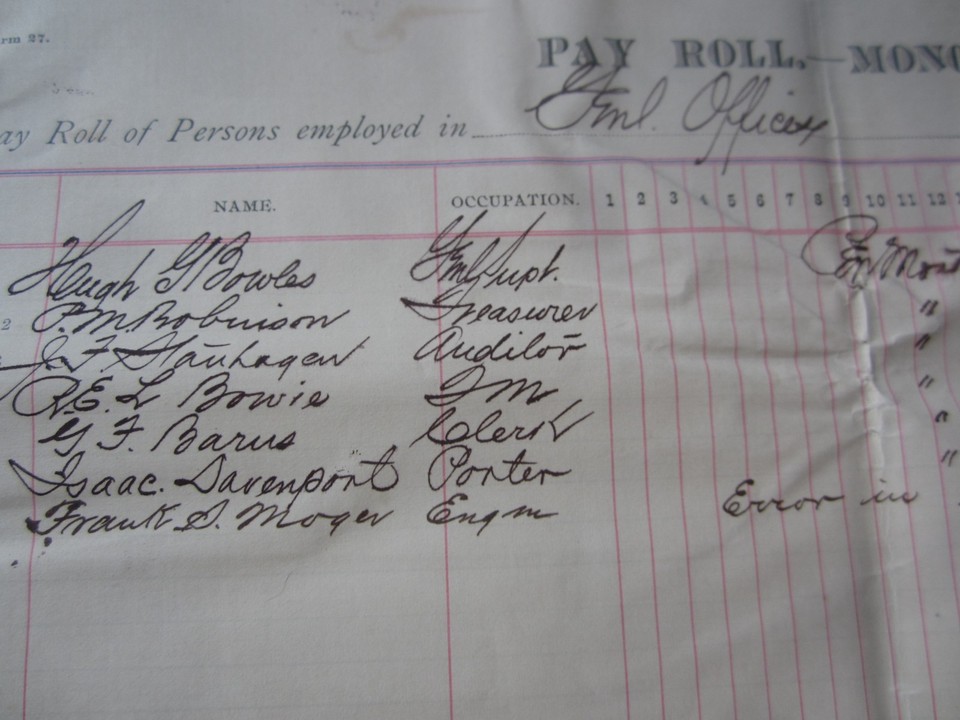 rm 27.
PAY ROLL.—MONO
ay Roll of Persons employed in Genl. Offices
NAME. OCCUPATION. 1 2 3 4 5 6 7 8 9 10 11 12
Hugh G Bowles Genl Supt. For Mont
2 P. M Robinson Treasurer "
J. F. Stanhagen Auditor "
R. E. L Bowie "
G. F. Barus Clerk "
Isaac. Davenport Porter "
Frank S. Moger Engm Error in